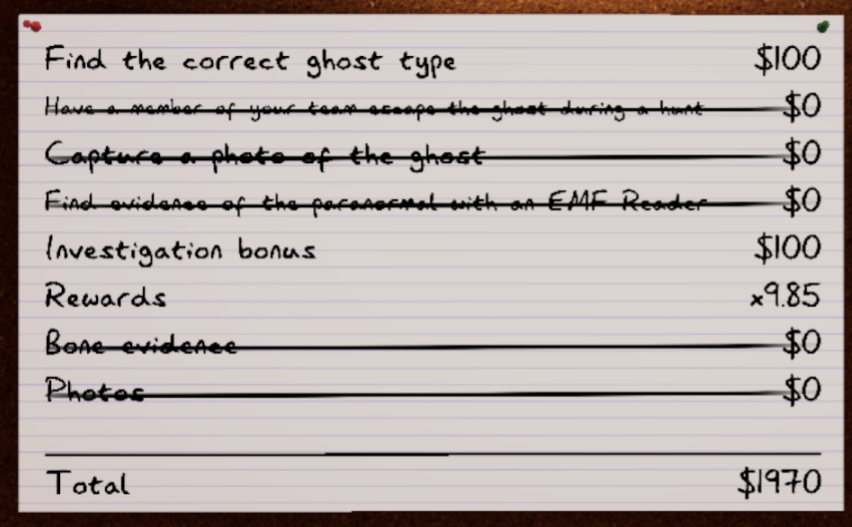 Find the correct ghost type $100
Have a member of your team escape the ghost during a hunt $0
Capture a photo of the ghost $0
Find evidence of the paranormal with an EMF Reader $0
Investigation bonus $100
Rewards x9.85
Bone evidence $0
Photos $0
Total $1970